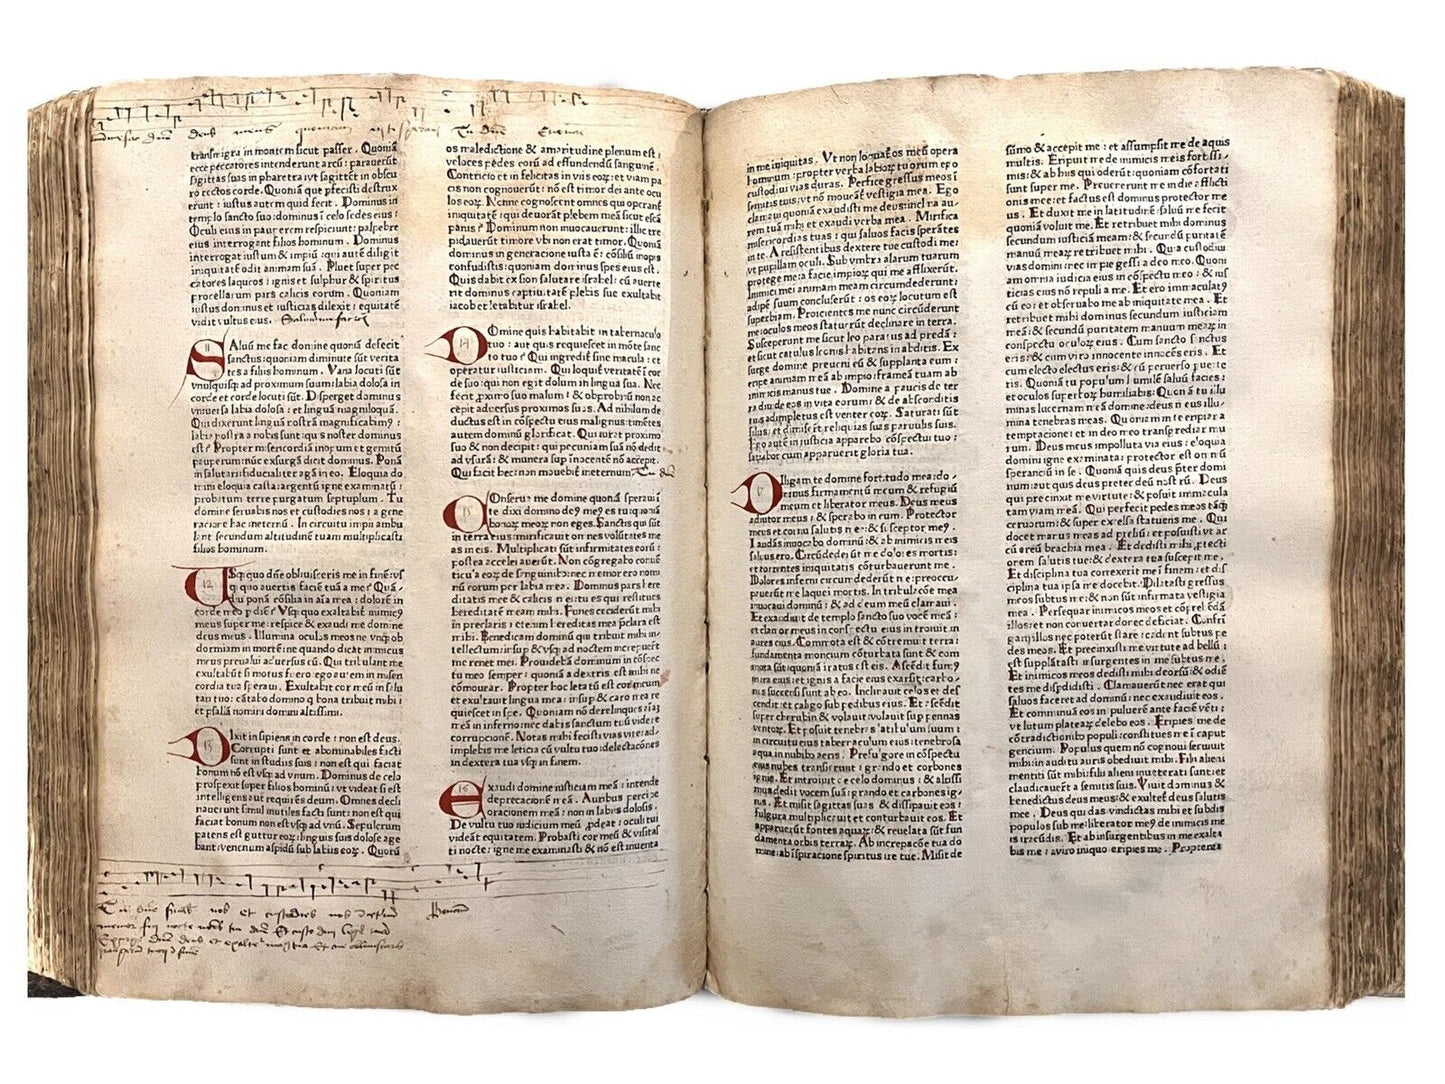 transmigra in montem sicut passer. Quoniã
ecce peccatores intenderunt arcũ: parauerũt
sagittas suas in pharetra: vt sagittẽt in obscu
ro rectos corde. Quoniã que pfecisti destrux
erunt: iustus autem quid fecit. Dominus in
templo sancto suo: dominus ĩ celo sedes eius:
Oculi eius in pauperem respiciunt: palpebre
eius interrogant filios hominum. Dominus
interrogat iustum & impiũ: qui autẽ diligit
iniquitatẽ odit animam suã. Pluet super pec
catores laqueos: ignis et sulphur & spiritus
procellarum pars calicis eorum. Quoniam
iustus dominus et iusticias dilexit: equitatẽ
vidit vultus eius. Saluum fac
11
SAluũ me fac domine quoniã defecit
sanctus: quoniam diminute sũt verita
tes a filiis hominum. Vana locuti sũt
vnusquisqz ad proximum suum: labia dolosa in
corde et corde locuti sũt. Disperget dominus
vniuersa labia dolosa: et linguã magniloquã.
Qui dixerunt linguã nostrã magnificabimꝰ:
labia nostra a nobis sunt: quis noster dominus
est? Propter misericordiã inopum et gemitũ
pauperum: nũc exsurgã dicit dominus. Ponã
in salutari: fiducialiter agã in eo. Eloquia do
mini eloquia casta: argentũ igne examinatũ:
probatum terre purgatum septuplum. Tu
domine seruabis nos et custodies nos: a gene
ratione hac ineternũ. In circuitu impii ambu
lant: secundum altitudinẽ tuam multiplicasti
filios hominum.
12
VSqz quo dñe obliuisceris me in finẽ: vs
qz quo auertis faciẽ tuã a me? Quã
diu ponã cõsilia in aĩa mea: dolorẽ in
corde meo p diẽ? Vsqz quo exaltabit̃ inimicꝰ
meus super me: respice & exaudi me domine
deus meus. Illumina oculos meos ne vnqz ob
dormiam in morte: ne quando dicat inimicus
meus preualui aduersus eũ. Qui tribulant me
exultabũt si motus fuero: ego autem in miseri
cordia tua speraui. Exultabit cor meũ in salu
tari tuo: cãtabo domino q bona tribuit mihi:
et psallã nomini domini altissimi.
13
DIxit insipiens in corde: non est deus.
Corrupti sunt et abominabiles facti
sunt in studiis suis: non est qui faciat
bonum nõ est vsqz ad vnum. Dominus de celo
prospexit super filios hominũ: vt videat si est
intelligens aut requirẽs deum. Omnes decli
nauerunt simul inutiles facti sunt: non est qui
faciat bonum non est vsqz ad vnũ. Sepulcrum
patens est guttur eoꝝ: linguis suis dolose age
bant: venenum aspidũ sub labiis eoꝝ. Quorũ
os maledictione & amaritudine plenum est:
veloces pedes eorũ ad effundendũ sanguinẽ.
Contricio et infelicitas in viis eoꝝ: et viam pa
cis non cognouerũt: nõ est timor dei ante ocu
los eoꝝ. Nonne cognoscent omnes qui operant̃
iniquitatẽ: qui deuorãt plebem meã sicut escã
panis? Dominum non inuocauerunt: illic tre
pidauerũt timore vbi non erat timor. Quoniã
dominus in generatione iusta ẽ: cõsiliũ inopis
confudistis: quoniam dominus spes eius est.
Quis dabit ex sion salutare israhel: cũ auerte
rit dominus captiuitatẽ plebis sue exultabit
iacob et letabitur israhel.
14
DOmine quis habitabit in tabernaculo
tuo: aut quis requiescet in mõte sanc
to tuo? Qui ingredit̃ sine macula: et
operatur iusticiam. Qui loquit̃ veritatẽ ĩ cor
de suo: qui non egit dolum in lingua sua. Nec
fecit pximo suo malum: & obprobriũ non ac
cepit aduersus proximos suos. Ad nihilum de
ductus est in cõspectu eius malignus: timẽtes
autem dominũ glorificat. Qui iurat proximo
suo & non decipit: qui pecuniam suã nõ dedit
ad vsurã: & munera sup innocentẽ nõ accepit.
Qui facit hec: non mouebit̃ ineternum.
15
COnserua me domine quoniã speraui ĩ
te: dixi domino deꝰ meꝰ es tu: quoniã
bonoꝝ meoꝝ non eges. Sanctis qui sũt
in terra eius: mirificauit omnes volũtates me
as in eis. Multiplicati sũt infirmitates eorũ:
postea accelerauerũt. Non cõgregabo conuẽ
ticula eoꝝ de sanguinibꝰ: nec memor ero nomi
nũ eorum per labia mea. Dominus pars here
ditatis mee & calicis mei: tu es qui restitues
hereditatẽ meam mihi. Funes ceciderũt mihi
in preclaris: etenim hereditas mea pclara est
mihi. Benedicam dominũ qui tribuit mihi in
tellectum: insup & vsqz ad noctem increpuerũt
me renes mei. Prouidebã dominum in cõspec
tu meo semper: quoniã a dextris est mihi ne
cõmouear. Propter hoc letatũ est cor meum
et exultauit lingua mea: insup & caro mea re
quiescet in spe. Quoniam nõ derelinques aĩaz
meã in inferno: nec dabis sanctum tuũ videre
corruptionẽ. Notas mihi fecisti vias vite: ad
implebis me leticia cũ vultu tuo: delectacões
in dextera tua vsqz in finem.
16
EXaudi domine iusticiam meã: intende
deprecationẽ meã. Auribus percipe
orationem meã: non in labiis dolosis.
De vultu tuo iudicium meũ pdeat: oculi tui
videãt equitatem. Probasti cor meũ & visitas
ti nocte: igne me examinasti & nõ est inuenta
in me iniquitas. Vt non loquat̃ os meũ opera
hominum: propter verba labioꝝ tuorum ego
custodiui vias duras. Perfice gressus meos ĩ
semitis tuis: vt nõ moueãt̃ vestigia mea. Ego
clamaui quoniã exaudisti me deus: inclina au
rem tuã mihi et exaudi verba mea. Mirifica
misericordias tuas: qui saluos facis sperãtes
in te. A resistentibus dextere tue custodi me:
vt pupillam oculi. Sub vmbra alarum tuarum
protege me: a facie impioꝝ qui me afflixerũt.
Inimici mei animam meam circumdederunt:
adipẽ suum concluserũt: os eoꝝ locutum est
superbiam. Proicientes me nunc circũderunt
me: oculos meos statuerũt declinare in terra.
Susceperunt me sicut leo paratus ad predã:
et sicut catulus leonis habitans in abditis. Ex
surge domine preueni eũ & supplanta eum:
eripe animam meã ab impio: frameã tuam ab
inimicis manus tue. Domine a paucis de ter
ra diuide eos in vita eorum: & de absconditis
tuis adimpletus est venter eoꝝ. Saturati sũt
filiis: et dimiserũt reliquias suas paruulis suis.
Ego autẽ in iusticia apparebo cõspectui tuo:
satiabor cum apparuerit gloria tua.
17
DIligam te domine fortitudo mea: do
minus firmamentũ meum & refugiũ
meum et liberator meus. Deus meus
adiutor meus: & sperabo in eum. Protector
meus et cornu salutis mee: & susceptor meꝰ.
Laudãs inuocabo dominũ: & ab inimicis meis
saluus ero. Circũdederũt me dolores mortis:
et torrentes iniquitatis cõturbauerunt me.
Dolores inferni circumdederũt me: preoccu
pauerũt me laquei mortis. In tribulacõe mea
inuocaui dominũ: & ad deum meũ clamaui.
Et exaudiuit de templo sancto suo vocẽ meã:
et clamor meus in conspectu eius introiuit in
aures eius. Commota est & cõtremuit terra:
fundamenta moncium cõturbata sunt & com
mota sũt: quoniã iratus est eis. Ascẽdit fumꝰ
in ira eius: et ignis a facie eius exarsit: carbo
nes succensi sunt ab eo. Inclinauit celos et des
cendit: et caligo sub pedibus eius. Et ascẽdit
super cherubin & volauit: volauit sup pennas
ventoꝝ. Et posuit tenebras latibulum suum:
in circuitu eius tabernaculum eius: tenebrosa
aqua in nubibꝰ aeris. Prefulgore in cõspectu
eius nubes transierunt: grando et carbones
ignis. Et intonuit de celo dominus: & altissi
mus dedit vocem suã: grando et carbones ig
nis. Et misit sagittas suas & dissipauit eos:
fulgura multiplicauit et conturbauit eos. Et
apparuerũt fontes aquaꝝ: & reuelata sũt fun
damenta orbis terraꝝ. Ab increpacõe tua do
mine: ab ĩspiracione spiritus ire tue. Misit de
sũmo & accepit me: et assumpsit me de aquis
multis. Eripuit me de inimicis meis fortissi
mis: & ab hiis qui oderũt: quoniam cõfortati
sunt super me. Preuenerunt me in die afflicti
onis mee: et factus est dominus protector me
us. Et duxit me in latitudinẽ: saluũ me fecit
quoniã voluit me. Et retribuet mihi dominus
secundum iusticiã meam: & secundũ puritatẽ
manuũ meaꝝ retribuet mihi. Quia custodiui
vias domini: nec impie gessi a deo meo. Quoni
am omnia iudicia eius in cõspectu meo: & ius
ticias eius nõ repuli a me. Et ero immaculatꝰ
cũ eo: et obseruabo me ab iniquitate mea. Et
retribuet mihi dominus secundum iusticiam
meã: & secundũ puritatem manuum meaꝝ in
conspectu oculoꝝ eius. Cum sancto sanctus
eris: & cum viro innocente innocẽs eris. Et
cum electo electus eris: & cũ peruerso puerte
ris. Quoniã tu populum humilẽ saluũ facies:
et oculos superboꝝ humiliabis. Quoniã tu illu
minas lucernam meã domine: deus meus illu
mina tenebras meas. Quoniam in te eripiar a
temptacione: et in deo meo transgrediar mu
rum. Deus meus impolluta via eius: eloquia
domini igne examinata: protector est omniũ
sperancium in se. Quoniã quis deus pter domi
num: aut quis deus preter deũ nostrũ. Deus
qui precinxit me virtute: & posuit immacula
tam viam meã. Qui perfecit pedes meos tãqz
ceruorum: & super excelsa statuens me. Qui
docet manus meas ad preliũ: et posuisti vt ar
cũ ereũ brachia mea. Et dedisti mihi ptecti
onem salutis tue: & dextera tua suscepit me.
Et disciplina tua correxit me ĩ finem: et dis
ciplina tua ipsa me docebit. Dilatasti gressus
meos subtus me: & non sũt infirmata vestigia
mea. Persequar inimicos meos et cõprehẽdã
illos: et non conuertar donec deficiant. Confrĩ
gam illos nec poterũt stare: cadent subtus pe
des meos. Et precinxisti me virtute ad bellũ:
et supplãtasti insurgentes in me subtus me.
Et inimicos meos dedisti mihi dorsũ: & odiẽ
tes me dispdidisti. Clamauerũt nec erat qui
saluos faceret ad dominũ: nec exaudiuit eos.
Et comminuã eos in puluerẽ ante faciẽ vẽti:
vt lutum plateaꝝ delebo eos. Eripies me de
cõtradictionibꝰ populi: constitues me ĩ caput
gencium. Populus quem nõ cognoui seruiuit
mihi: in auditu auris obediuit mihi. Filii alieni
mentiti sũt mihi: filii alieni inueterati sunt: et
claudicauerũt a semitis suis. Viuit dominus &
benedictus deus meus: & exultet̃ deus salutis
mee. Deus qui das vindictas mihi et subdis
populos sub me: liberator meꝰ de inimicis me
is iracũdis. Et ab insurgentibus in me exalta
bis me: a viro iniquo eripies me. Propterea